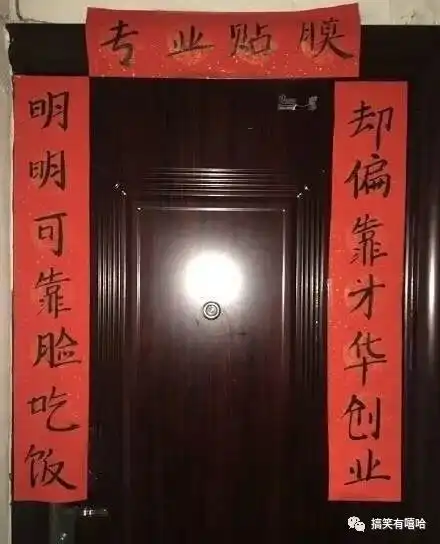 专业贴膜
明明可靠脸吃饭
却偏靠才华创业
搞笑有嘻哈